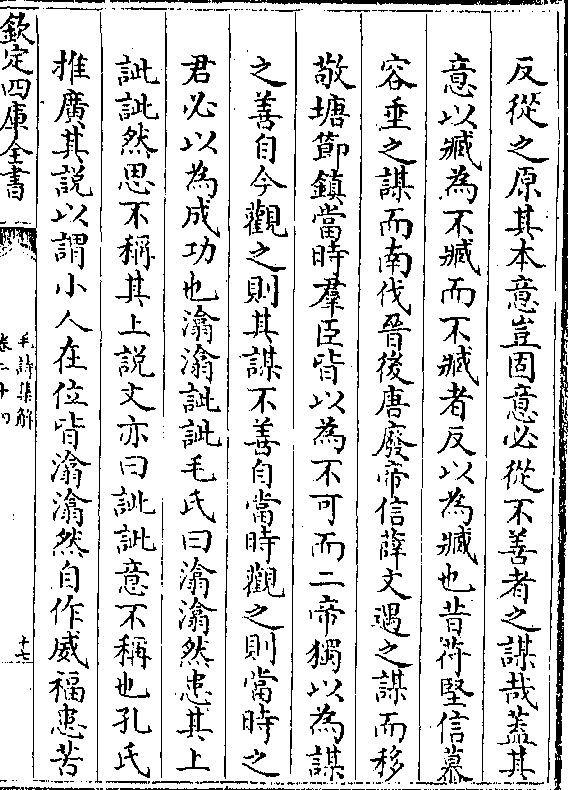 反從之原其本意豈固意必從不善者之謀哉葢其
意以臧為不臧而不臧者反以為臧也昔苻堅信慕
容垂之謀而南伐晉後唐廢帝信薛文遇之謀而移
敬塘節鎮當時羣臣皆以為不可而二帝獨以為謀
之善自今觀之則其謀不善自當時觀之則當時之
君必以為成功也潝潝訿訿毛氏曰潝潝然患其上
訿訿然思不稱其上説文亦曰訿訿意不稱也孔氏
推廣其説以謂小人在位皆潝潝然自作威福患苦
欽定四庫全書
毛詩集解
卷二十四
十七